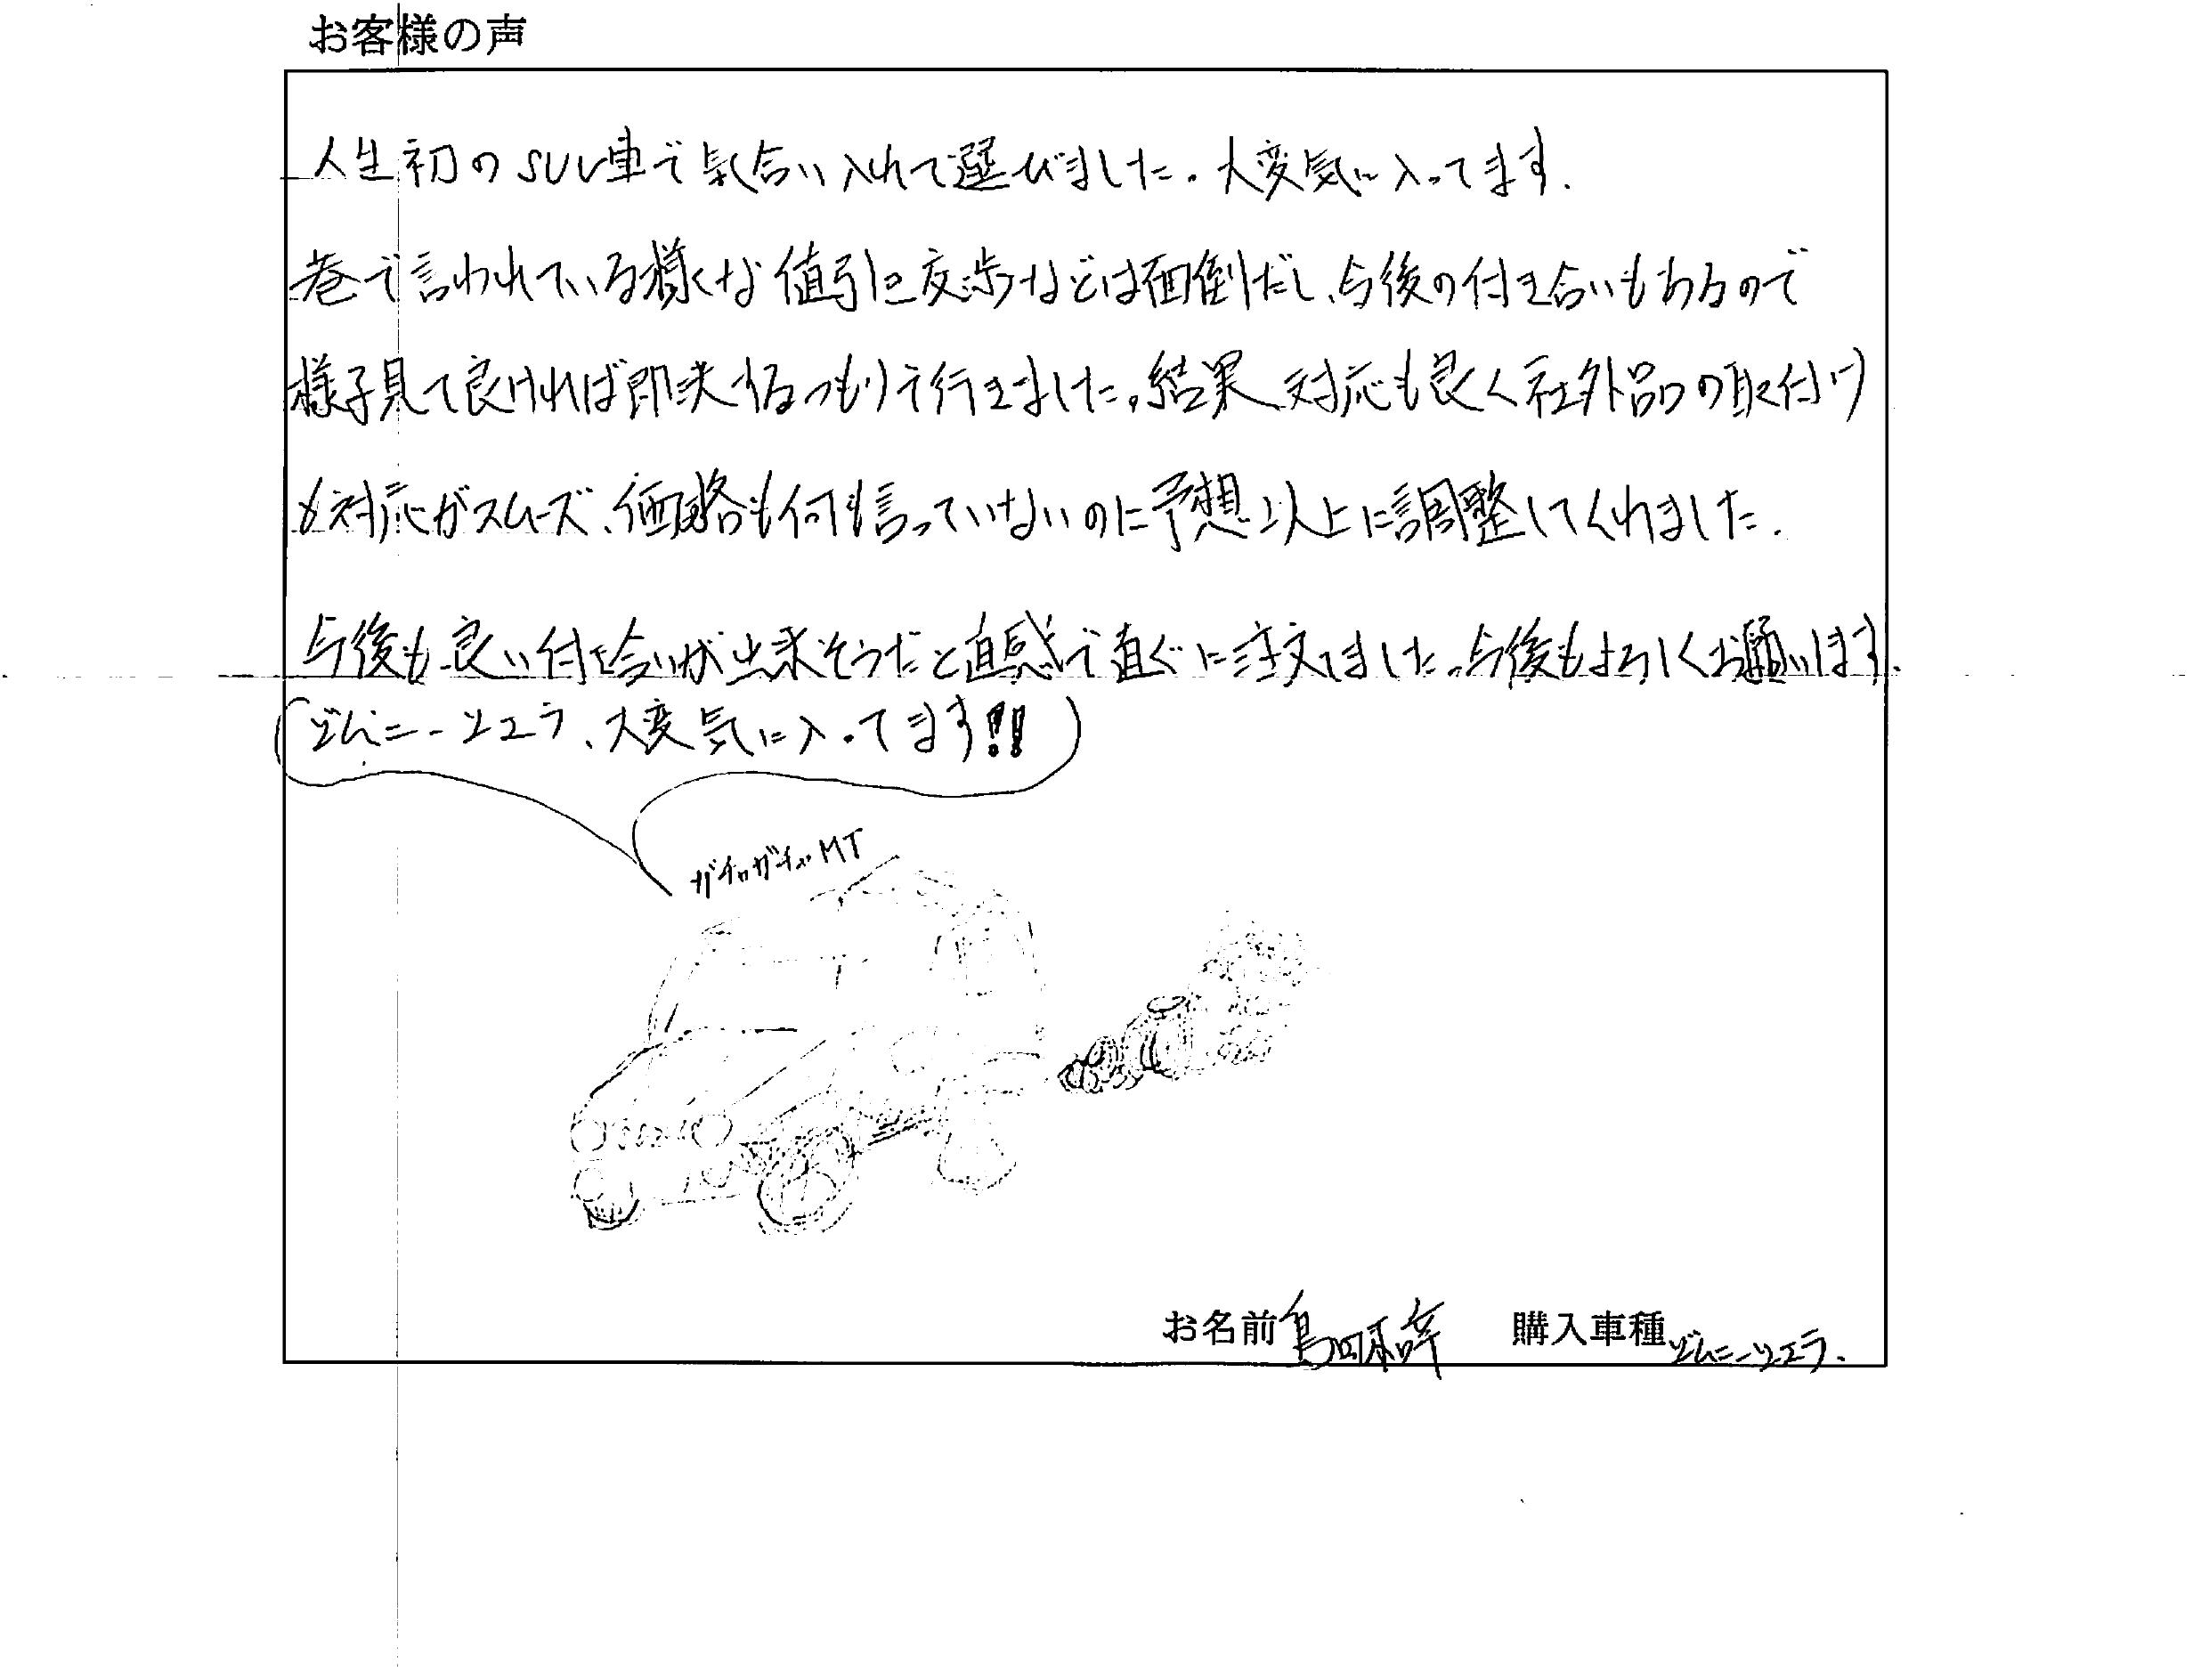 お客様の声
人生初のSUV車で気合い入れて選びました。大変気に入ってます。
巷で言われている様な値引き交渉などは面倒だし、今後の付き合いもあるので
様子見て良ければ即決するつもりで行きました。結果、対応も良く社外品の取付け
も対応がスムーズ、価格も何も言っていないのに予想以上に調整してくれました。
今後も良い付き合いが出来そうだと直感で直ぐに注文しました。今後もよろしくお願いします。
ジムニーシエラ、大変気に入ってます!!
ガチャガチャMT
お名前 島田 購入車種 ジムニーシエラ.